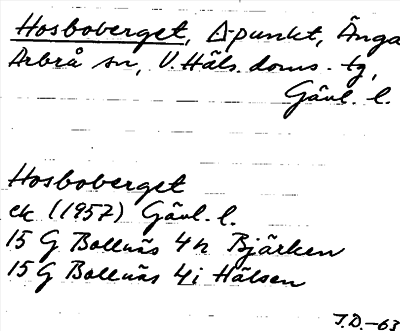 Hosboberget, Δ-punkt, Änga
Arbrå sn, V. Häls. doms. tg,
Gävl. l.
Hosboberget
ek (1957) Gävl. l.
15 G Bollnäs 4h Bjärken
15 G Bollnäs 4i Hälsen
J.D.-63